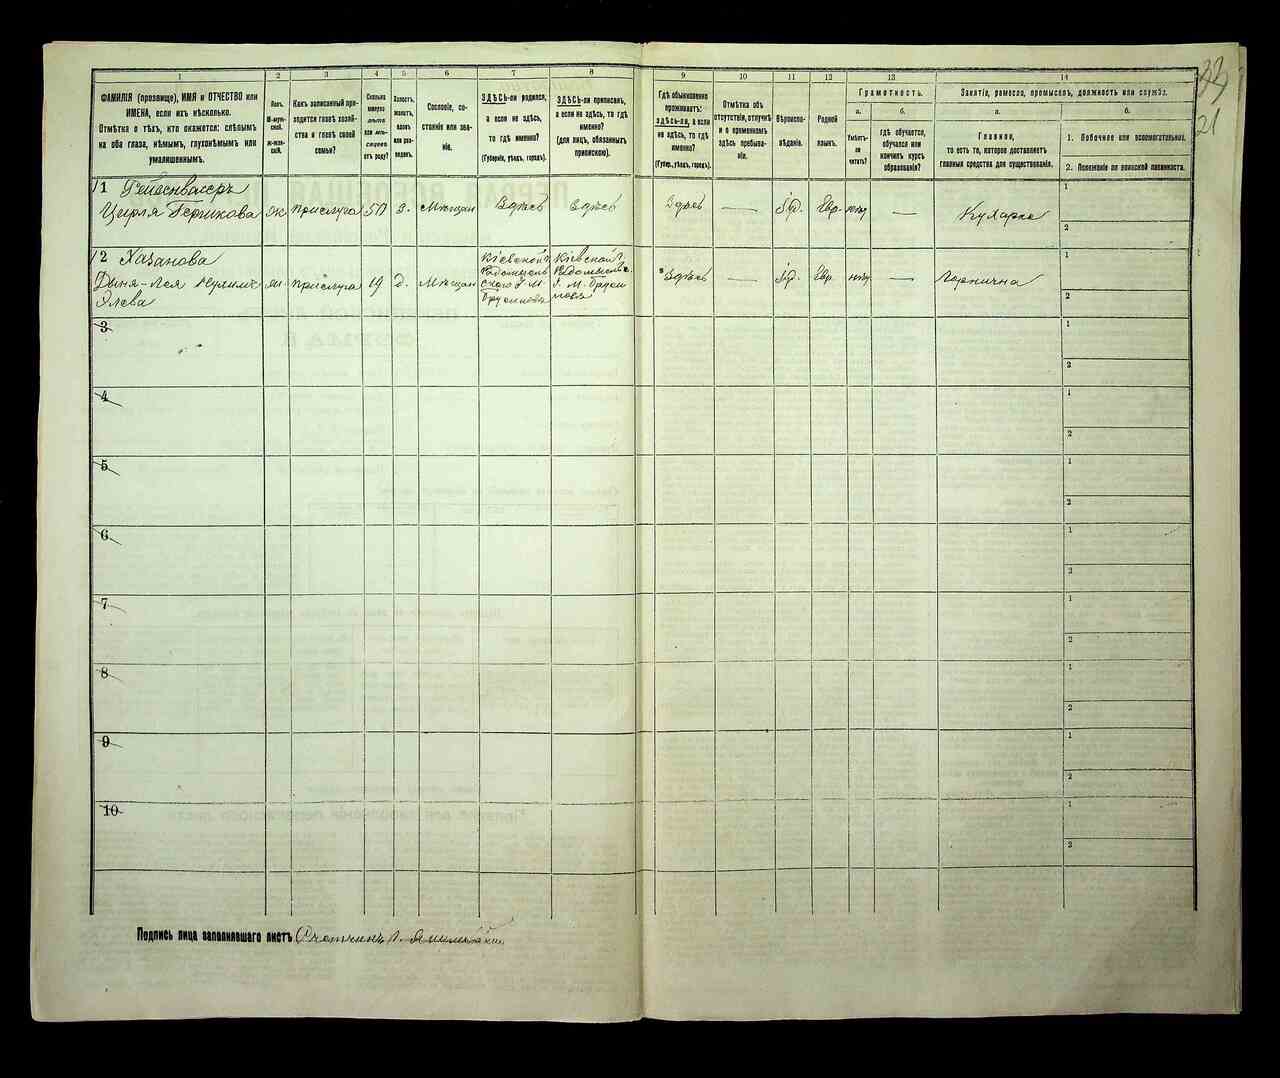 1 2 3 4 5 6 7 8 9 10 11 12 13 14
ФАМИЛІЯ (прозвище), ИМЯ и ОТЧЕСТВО или
ИМЕНА, если ихъ нѣсколько.
Отмѣтка о тѣхъ, кто окажется: слѣпымъ
на оба глаза, нѣмымъ, глухонѣмымъ или
умалишеннымъ.
Полъ.
М-муж-
ской.
Ж-жен-
скій.
Какъ записанный при-
ходится главѣ хозяй-
ства и главѣ своей
семьи?
Сколько
минуло
лѣтъ
или мѣ-
сяцевъ
отъ роду?
Холостъ,
женатъ,
вдовъ
или раз-
веденъ.
Сословіе, со-
стояніе или зва-
ніе.
ЗДѢСЬ-ли родился,
а если не здѣсь,
то гдѣ именно?
(Губернія, уѣздъ, городъ).
ЗДѢСЬ-ли приписанъ,
а если не здѣсь, то гдѣ
именно?
(для лицъ, обязанныхъ
припискою).
Гдѣ обыкновенно
проживаетъ:
здѣсь-ли, а если
не здѣсь, то гдѣ
именно?
(Губер., уѣздъ, городъ).
Отмѣтка объ
отсутствіи, отлучкѣ
и о временномъ
здѣсь пребыва-
ніи.
Вѣроиспо-
вѣданіе.
Родной
языкъ.
Грамотность.
а. б.
Умѣетъ-
ли
читать?
гдѣ обучается,
обучался или
кончилъ курсъ
образованія?
Занятіе, ремесло, промыселъ, должность или служба.
а. б.
Главное,
то есть то, которое доставляетъ
главныя средства для существованія.
1. Побочное или вспомогательное.
2. Положеніе по воинской повинности.
33
21
1
Цирля Гершкова ж прислуга 50 з. Мѣщан Здѣсь Здѣсь Здѣсь — Iуд. Евр. нѣт — Кухарка
1
2
2 Хазанова
Дыня-Лея ж прислуга 19 д. Мѣщан Здѣсь — Iуд. Евр. нѣт — Горнична
Кіевской г.
Кіевской г.
1
2
3
1
2
4
1
2
5
1
2
6
1
2
7
1
2
8
1
2
9
1
2
10
1
2
Подпись лица заполнявшаго листъ Счетчикъ